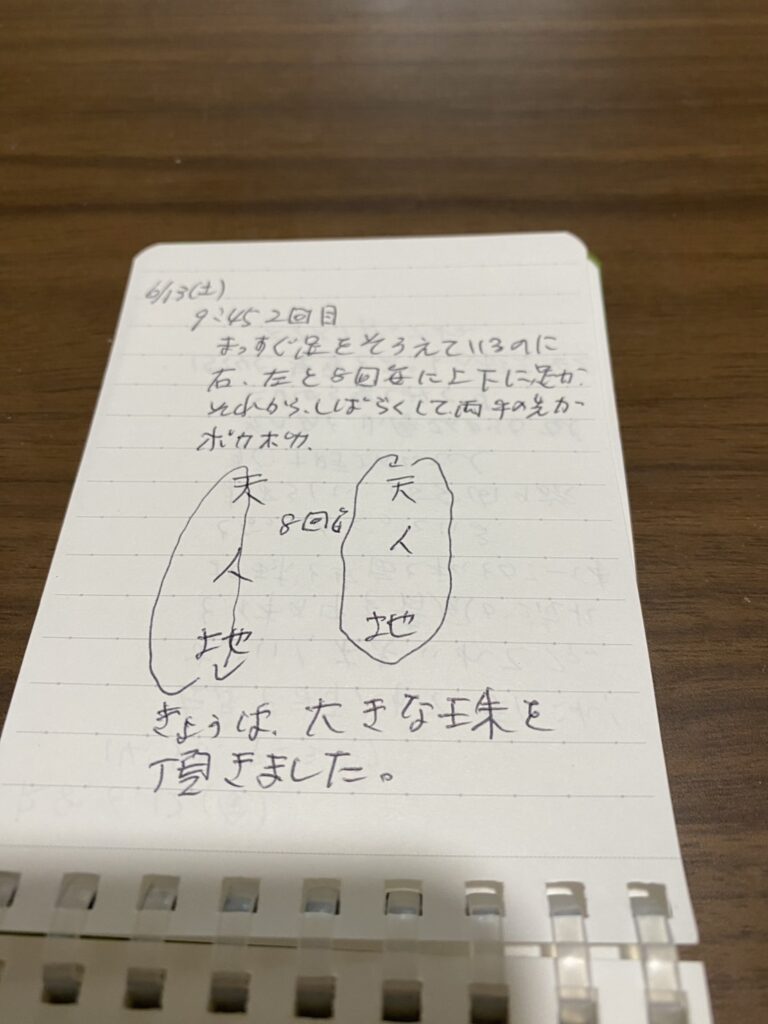 6/13(土)
9:45 2回目
まっすぐ足をそろえているのに
右、左と8回毎に上下に足が、
それから、しばらくして両手の先が
ポカポカ
天 天
8回毎
人 人
地 地
きょうは、大きな珠を
頂きました。